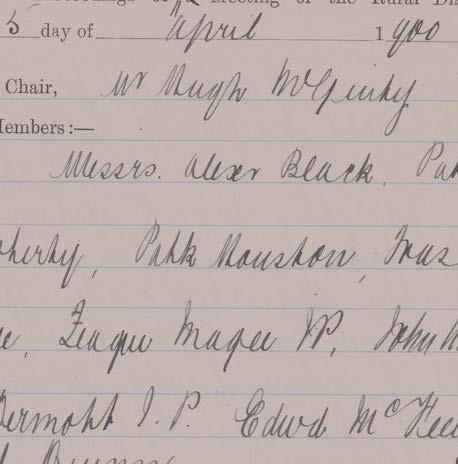 Meeting of the Rural Dis
5 day of April 1900
Chair, Mr Hugh McGinty
Members:—
Messrs. Alexr Black, Pat
oherty, Patk Houston, Fras
e, Teague Magee JP, John M
Dermott J.P. Edwd McFee